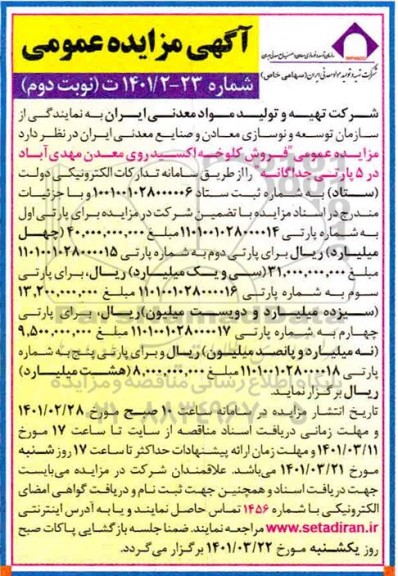 آگهی مزایده عمومی
شماره ۲۳-۱۴۰۱/۲ ت (نوبت دوم)
شرکت تهیه و تولید مواد معدنی ایران (سهامی خاص)
شرکت تهیه و تولید مواد معدنی ایران به نمایندگی از
سازمان توسعه و نوسازی معادن و صنایع معدنی ایران در نظر دارد
مزایده عمومی "فروش کلوخه اکسید روی معدن مهدی آباد
در ۵ پارتی جداگانه" را از طریق سامانه تدارکات الکترونیکی دولت
(ستاد) به شماره ثبت ستاد ۱۰۰۱۰۰۱۰۲۸۰۰۰۰۰۶ و با جزئیات
مندرج در اسناد مزایده با تضمین شرکت در مزایده برای پارتی اول
به شماره پارتی ۱۱۰۱۰۰۱۰۲۸۰۰۰۰۱۴ مبلغ ۴۰,۰۰۰,۰۰۰,۰۰۰ (چهل
میلیارد) ریال برای پارتی دوم به شماره پارتی ۱۱۰۱۰۰۱۰۲۸۰۰۰۰۱۵
مبلغ ۳۱,۰۰۰,۰۰۰,۰۰۰ (سی و یک میلیارد) ریال، برای پارتی
سوم به شماره پارتی ۱۱۰۱۰۰۱۰۲۸۰۰۰۰۱۶ مبلغ ۱۳,۲۰۰,۰۰۰,۰۰۰
(سیزده میلیارد و دویست میلیون) ریال، برای پارتی
چهارم به شماره پارتی ۱۱۰۱۰۰۱۰۲۸۰۰۰۰۱۷ مبلغ ۹,۵۰۰,۰۰۰,۰۰۰
(نه میلیارد و پانصد میلیون) ریال و برای پارتی پنج به شماره
پارتی ۱۱۰۱۰۰۱۰۲۸۰۰۰۰۱۸ مبلغ ۸,۰۰۰,۰۰۰,۰۰۰ (هشت میلیارد)
ریال برگزار نماید.
تاریخ انتشار مزایده در سامانه ساعت ۱۰ صبح مورخ ۱۴۰۱/۰۲/۲۸
و مهلت زمانی دریافت اسناد مناقصه از سایت تا ساعت ۱۷ مورخ
۱۴۰۱/۰۳/۱۱ و مهلت زمان ارائه پیشنهادات حداکثر تا ساعت ۱۷ روز شنبه
مورخ ۱۴۰۱/۰۳/۲۱ می‌باشد. علاقمندان شرکت در مزایده می‌بایست
جهت دریافت اسناد و همچنین جهت ثبت نام و دریافت گواهی امضای
الکترونیکی با شماره ۱۴۵۶ تماس حاصل نمایند و یا به آدرس اینترنتی
www.setadiran.ir مراجعه نمایند. ضمنا جلسه بازگشایی پاکات صبح
روز یکشنبه مورخ ۱۴۰۱/۰۳/۲۲ برگزار می گردد.